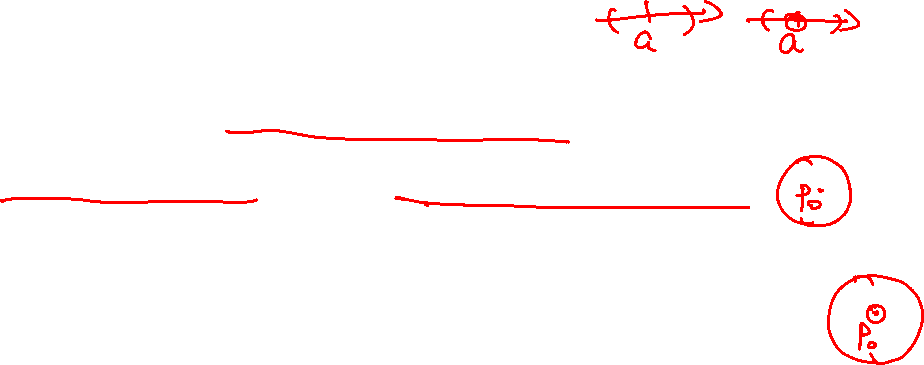 ( a ) ( a )
P₀
P₀